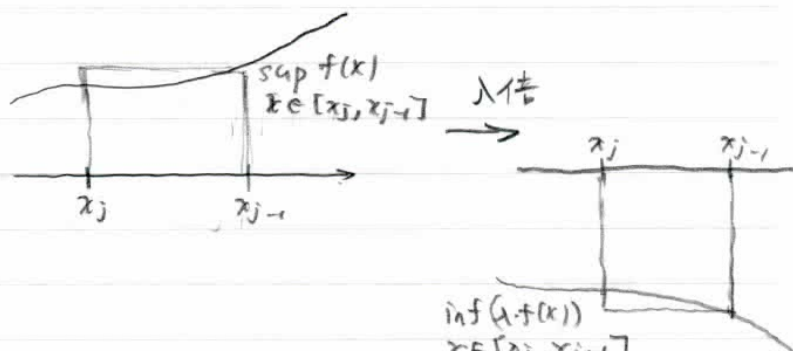 sup f(x)
x∈[xj, xj-1]
λ倍
xj
xj-1
xj
xj-1
inf(λ·f(x))
x∈[xj, xj-1]